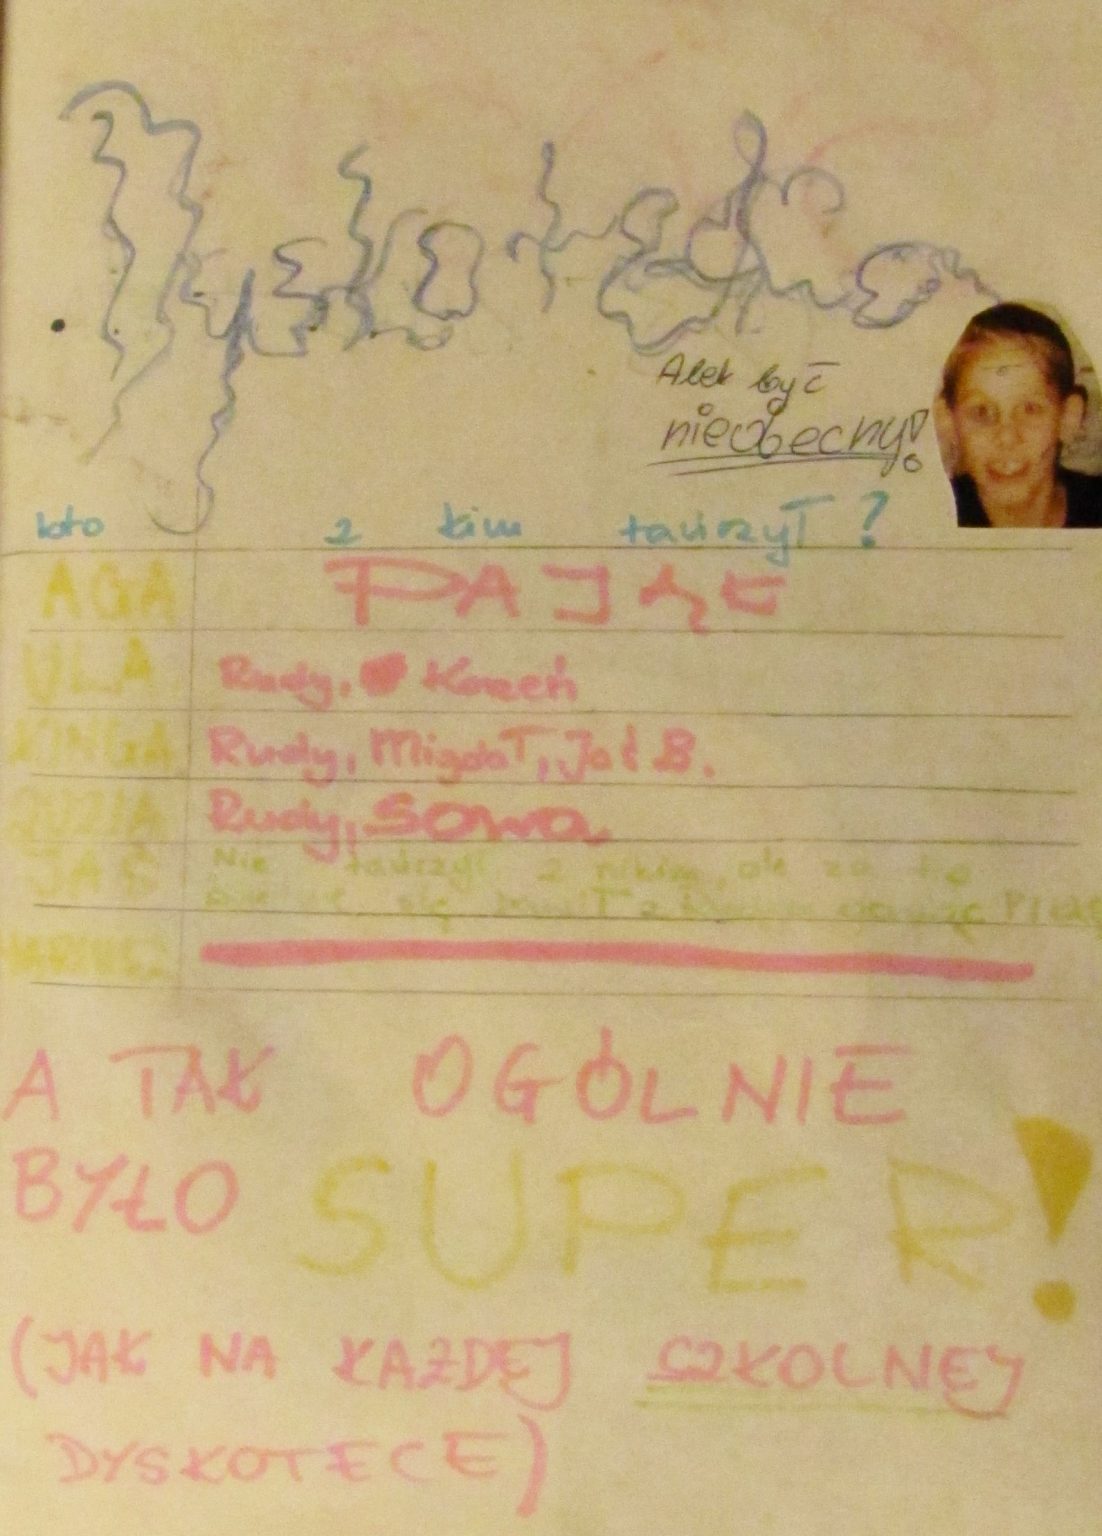 Alek być
nieobecny!
kto z kim tańczył?
AGA PAJĄK
ULA Rudy, Korzeń
KINGA Rudy, Migdał, Jaś B.
Rudy, Sowa
JAŚ Nie tańczył z nikim, ale za to
się
A TAK OGÓLNIE
BYŁO SUPER!
(JAK NA KAŻDEJ SZKOLNEJ
DYSKOTECE)